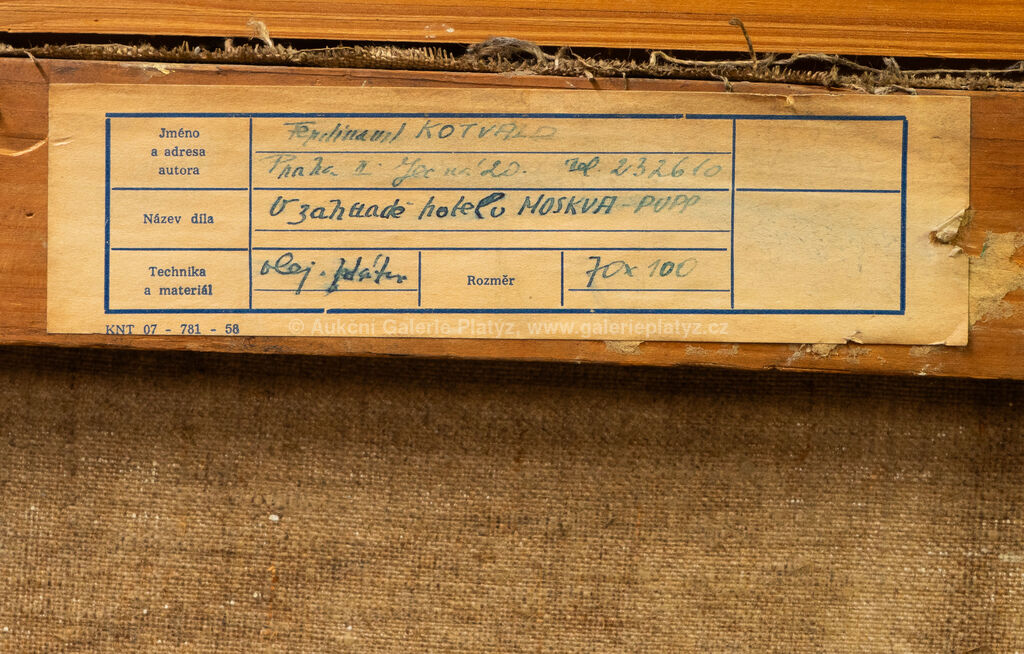 Jméno
a adresa
autora
Ferdinand KOTVALD
Praha II. Ječná 20. tel. 232610
Název díla
V zahradě hotelu MOSKVA-PUPP
Technika
a materiál
olej. plátno
Rozměr
70x100
KNT 07 - 781 - 58
© Aukční Galerie Platýz, www.galerieplatyz.cz